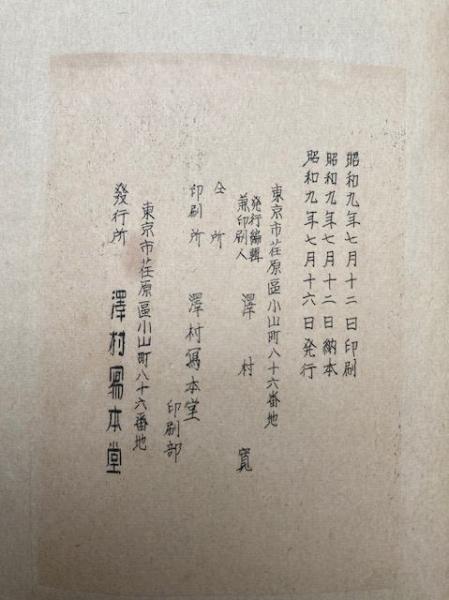 昭和九年七月十二日印刷
昭和九年七月十二日納本
昭和九年七月十六日発行
東京市荏原區小山町八十六番地
発行編輯
兼印刷人 澤村寛
仝所
印刷所 澤村寫本堂
印刷部
東京市荏原區小山町八十六番地
發行所 澤村寫本堂